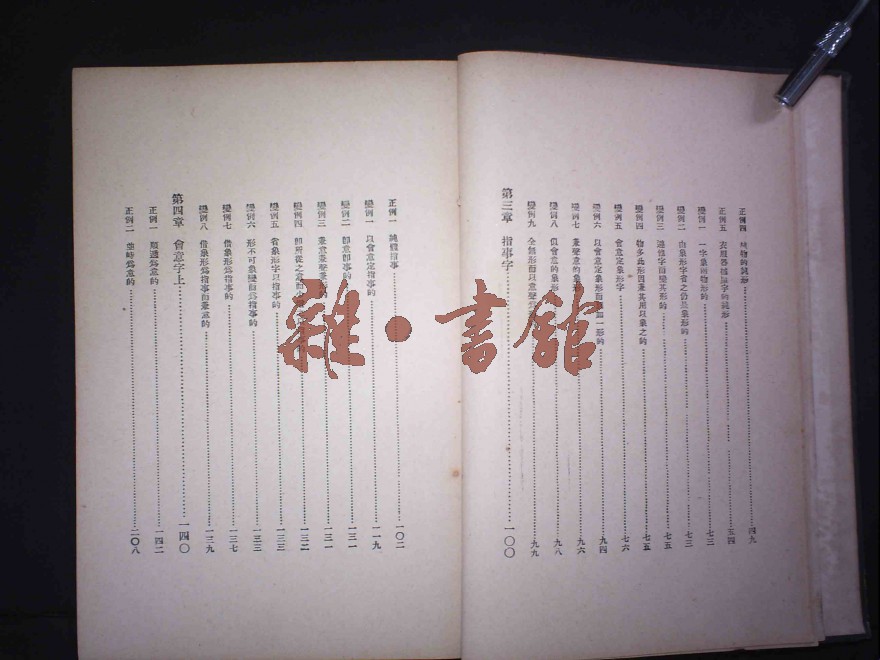 正例四 植物的純形 四九
正例五 衣服器械屋宇的純形 五四
變例一 一字象兩物形的 七三
變例二 由象形字省之仍以象形的 七三
變例三 避他字而變其形的 七五
變例四 物多此形因兼其用以象之的 七五
變例五 會意定象形字 七六
變例六 以會意定象形而 一形的 九四
變例七 兼聲意的象形 九六
變例八 似會意的象形 九八
變例九 全無形而以意聲 九九
第三章 指事字 一〇〇
正例一 純體指事 一〇二
變例一 以會意定指事的 一一九
變例二 即意即事的 一三一
變例三 兼意兼聲兼形 一三一
變例四 即所從之意而 一三二
變例五 省象形字以指事的 一三三
變例六 形不可象變而爲指事的 一三三
變例七 借象形爲指事的 一三七
變例八 借象形爲指事而兼意的 一三九
第四章 會意字上 一四〇
正例一 順遞爲意的 一四二
正例二 並峙爲意的 二〇八
雜·書館